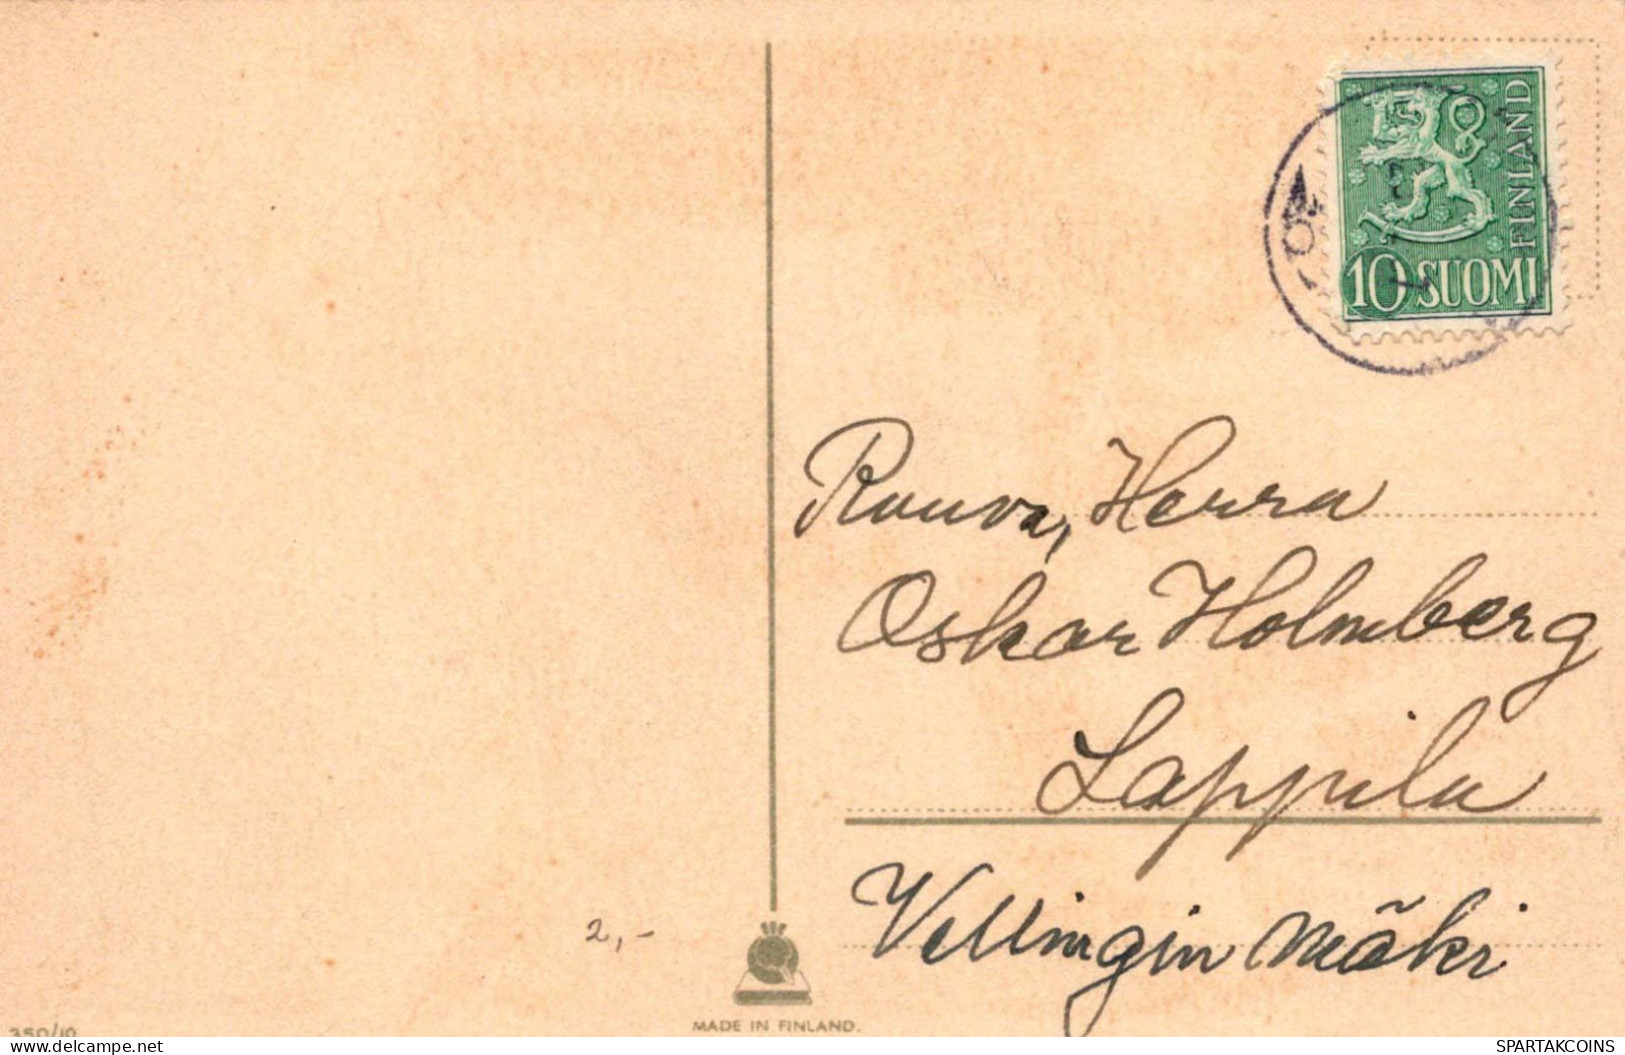 FINLAND
10 SUOMI
Rouva, Herra
Oskar Holmberg
Lappila
Vellingin mäki
2,-
MADE IN FINLAND.
350/10
www.delcampe.net
SPARTAKCOINS